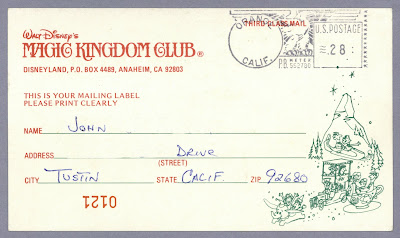 WALT DISNEY'S
MAGIC KINGDOM CLUB®
DISNEYLAND, P.O. BOX 4489, ANAHEIM, CA 92803
THIRD CLASS MAIL
ORANGE
CALIF.
U.S. POSTAGE
.28
THIS IS YOUR MAILING LABEL
PLEASE PRINT CLEARLY
NAME John
ADDRESS Drive
(STREET)
CITY Tustin STATE Calif. ZIP 92680
0121